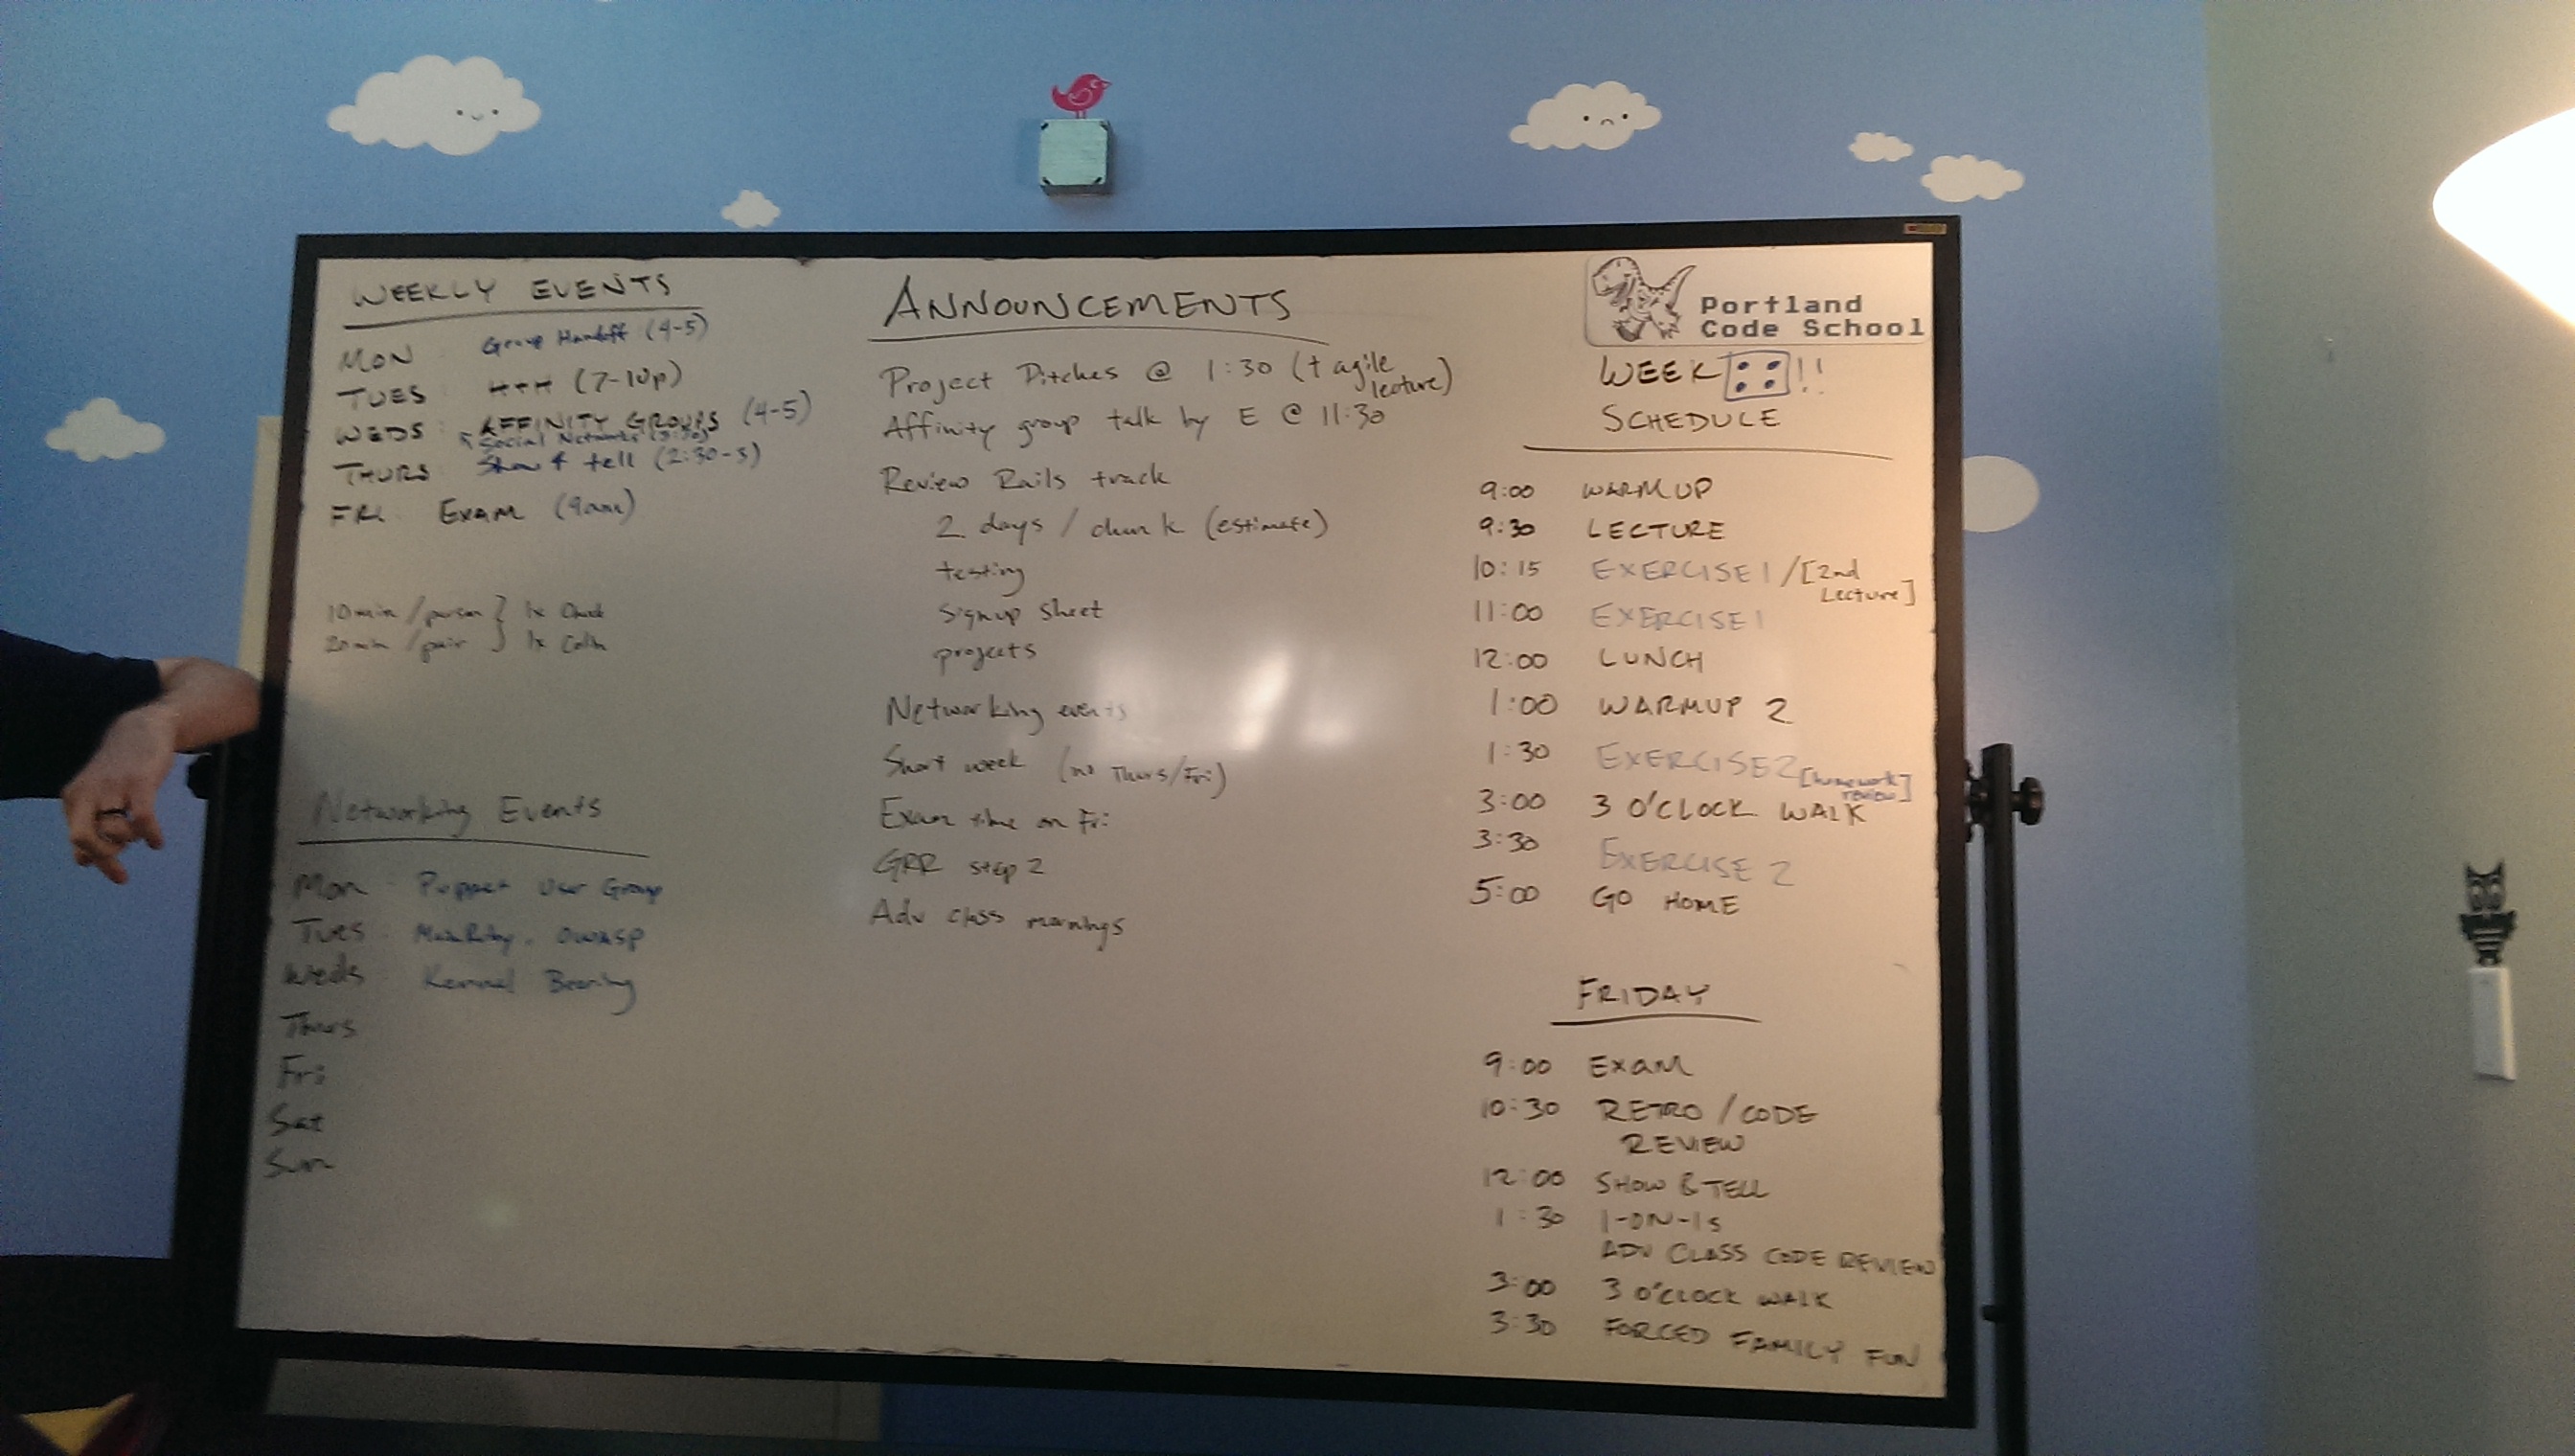 WEEKLY EVENTS
MON Group Handoff (4-5)
TUES HTH (7-10p)
WEDS: AFFINITY GROUPS (4-5)
Social Networks
THURS: Show & tell (2:30-3)
FRI EXAM (9am)
10min/person } 1x
20min/pair } 1x
Networking Events
Mon: Puppet User Group
Tues: OWASP
Weds Kernel
Thurs
Fri
Sat
Sun
ANNOUNCEMENTS
Project Pitches @ 1:30 (+ agile
lecture)
Affinity group talk by E @ 11:30
Review Rails track
2 days / chunk (estimate)
testing
Signup sheet
projects
Networking events
Short week (no Thurs/Fri)
Exam time on Fri
GRR step 2
Adv class mornings
Portland
Code School
WEEK !!
SCHEDULE
9:00 WARMUP
9:30 LECTURE
10:15 EXERCISE 1 / [2nd
Lecture]
11:00 EXERCISE 1
12:00 LUNCH
1:00 WARMUP 2
1:30 EXERCISE 2 [homework
review]
3:00 3 O'CLOCK WALK
3:30 EXERCISE 2
5:00 GO HOME
FRIDAY
9:00 EXAM
10:30 RETRO / CODE
REVIEW
12:00 SHOW & TELL
1:30 1-ON-1s
ADV CLASS CODE REVIEW
3:00 3 O'CLOCK WALK
3:30 FORCED FAMILY FUN